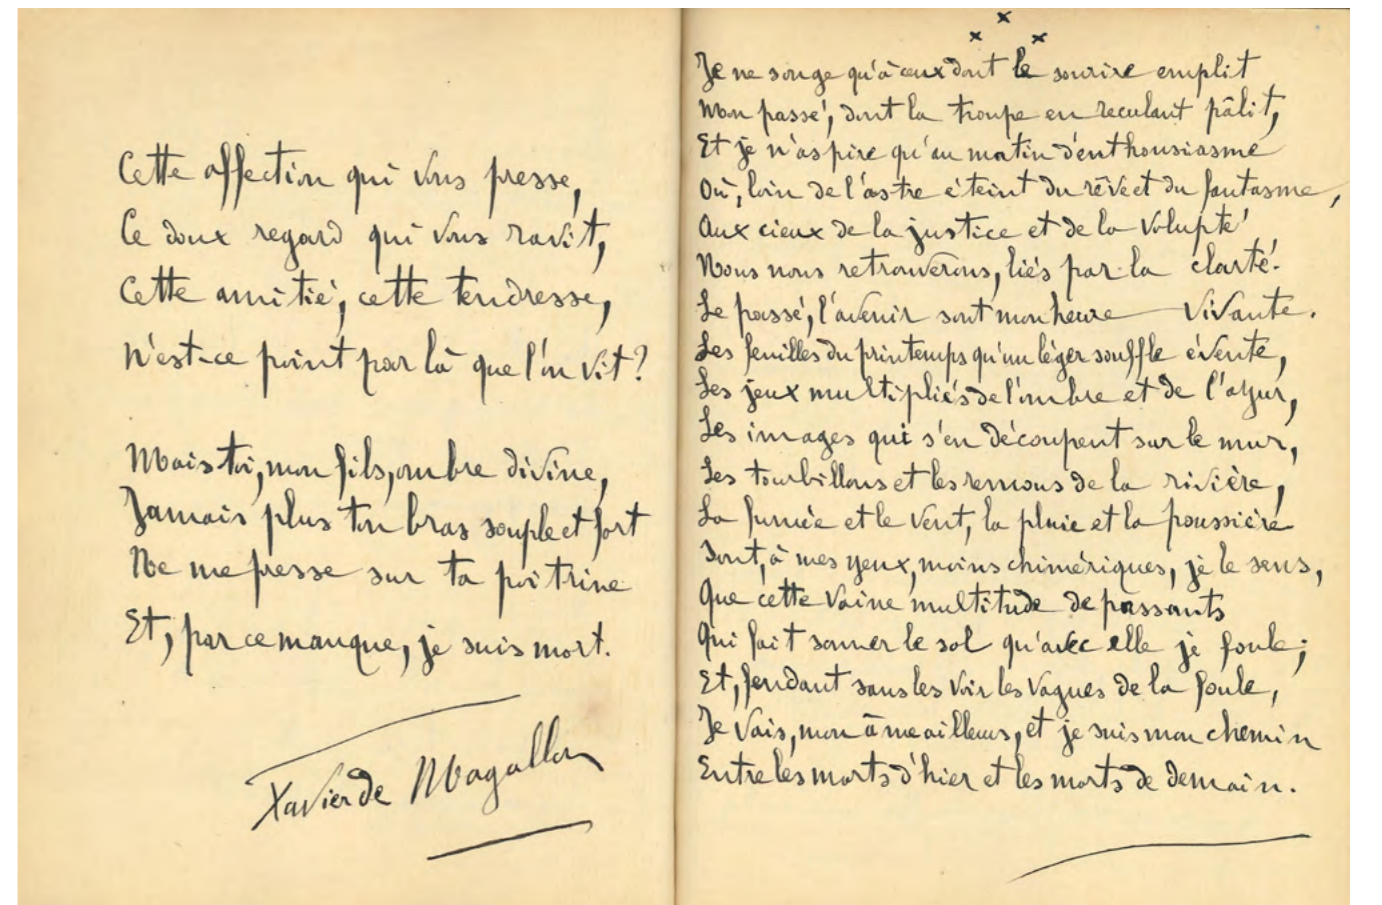 Cette affection qui vous presse,
Ce doux regard qui vous ravit,
Cette amitié, cette tendresse,
N'est-ce point par là que l'on vit?
Mais toi, mon fils, ombre divine,
Jamais plus ton bras souple et fort
Ne me presse sur ta poitrine
Et, par ce manque, je suis mort.
Xavier de Magallon
x
x x
Je ne songe qu'à ceux dont le sourire emplit
Mon passé, dont la troupe en reculant pâlit,
Et je n'aspire qu'au matin d'enthousiasme
Où, loin de l'astre éteint du rêve et du fantasme,
Aux cieux de la justice et de la volupté
Nous nous retrouverons, liés par la clarté.
Le passé, l'avenir sont mon heure vivante.
Les feuilles du printemps qu'un léger souffle évente,
Les jeux multipliés de l'ombre et de l'azur,
Les images qui s'en découpent sur le mur,
Les tourbillons et les remous de la rivière,
La fumée et le vent, la pluie et la poussière
Sont, à mes yeux, moins chimériques, je le sens,
Que cette vaine multitude de passants
Qui fait sonner le sol qu'avec elle je foule;
Et, fendant sans les voir les vagues de la foule,
Je vais, mon âme ailleurs, et je suis mon chemin
Entre les morts d'hier et les morts de demain.